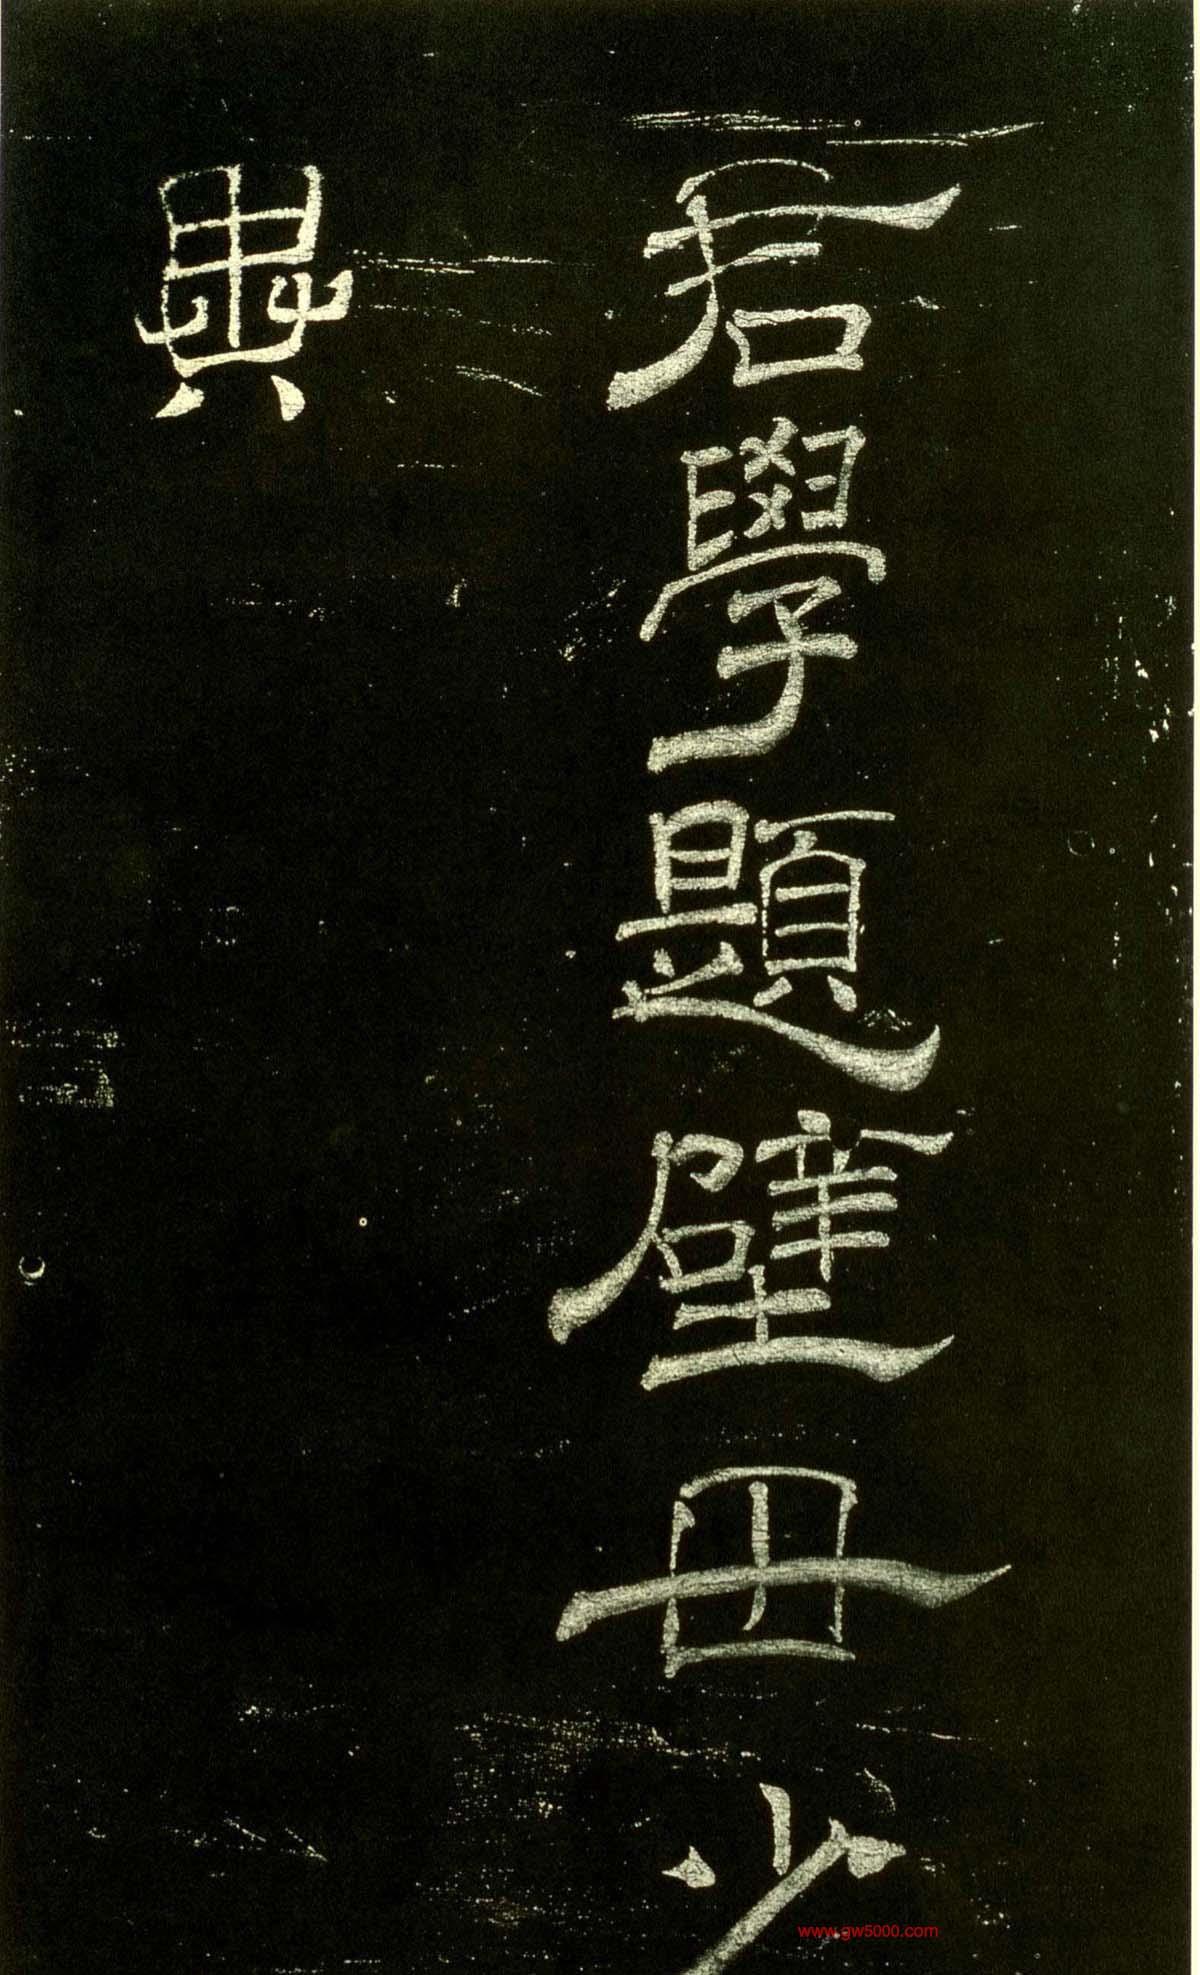 君學題壁毋少
www.gw5000.com